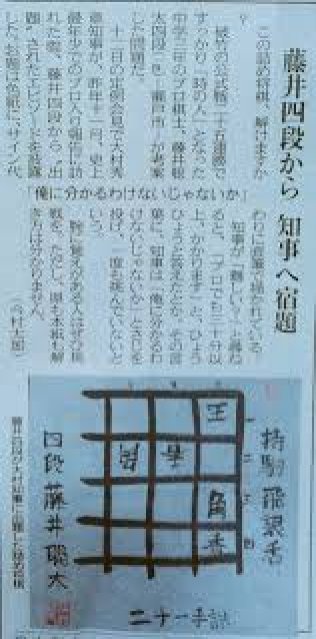 藤井四段から 知事へ宿題
この詰め将棋、解けますか
?
破竹の公式戦二十五連勝で
すっかり「時の人」となった
中学三年のプロ棋士、藤井聡
太四段(瀬戸市)が考案
した問題だ。
十二日の定例会見で大村秀
章知事が、昨年十二月、史上
最年少でのプロ入り報告に訪
れた際、藤井四段から“出
題”されたエピソードを披露
した。お題は色紙に、サイン代
「俺に分かるわけないじゃないか」
わりに直筆で描かれている。
知事が「難しい?」と尋ね
ると、「プロでも三十分以
上、かかります」と、ひょう
ひょうと答えたとか。その言
葉に、知事は「俺に分かるわ
けないじゃないか」とさじを
投げ、一度も挑んでいないと
いう。
腕に覚えがある人はぜひ挑
戦を。ただし、県も本紙も解
き方は分かりません。
(今村太郎)
持駒 飛銀香
王
角
香
二十一手詰
四段 藤井聡太
藤井四段が大村知事に出題した詰め将棋